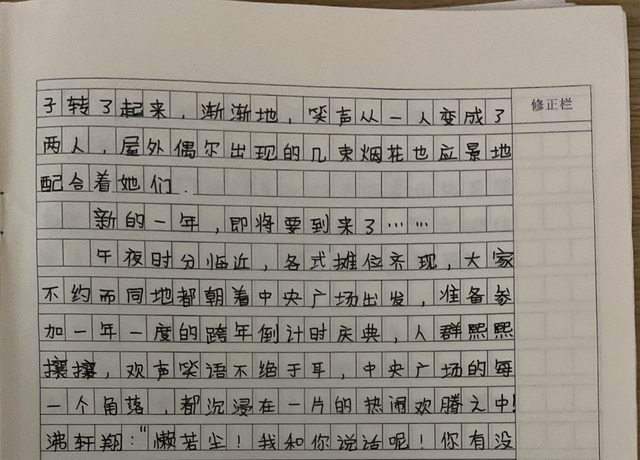 修正栏
子转了起来，渐渐地，笑声从一人变成了
两人，屋外偶尔出现的几束烟花也应景地
配合着她们.
新的一年，即将要到来了……
午夜时分临近，各式摊位齐现，大家
不约而同地都朝着中央广场出发，准备参
加一年一度的跨年倒计时庆典，人群熙熙
攘攘，欢声笑语不绝于耳，中央广场的每
一个角落，都沉浸在一片的热闹欢腾之中！
沸轩翔："懒若尘！我和你说话呢！你有没